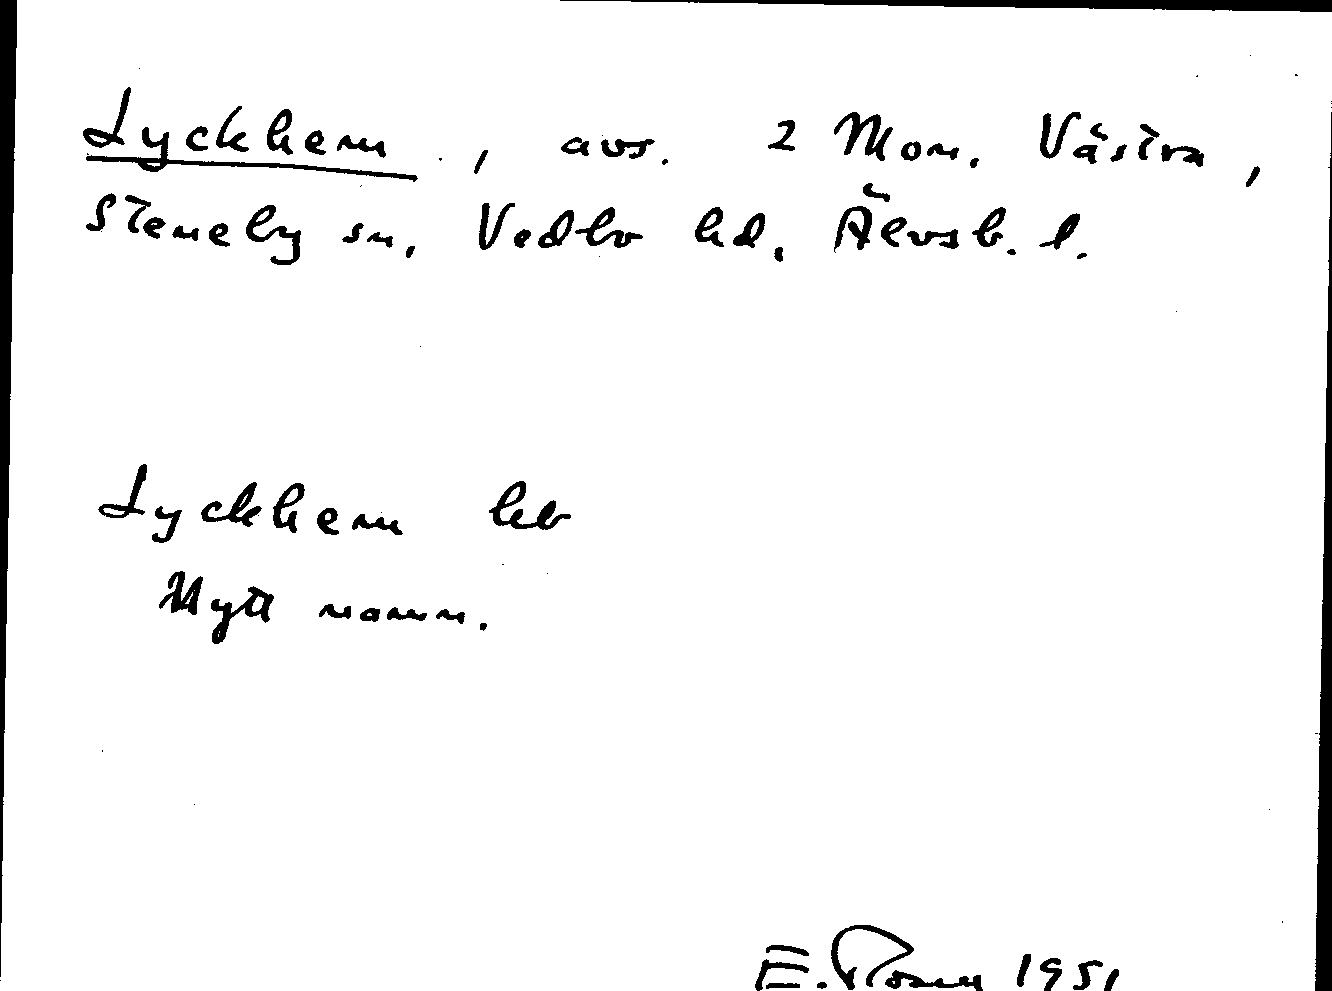 Lyckhem, avs. 2 Mon. Västra,
Steneby sn. Vedbo hd. Älvsb. l.
Lyckhem hb
Nytt namn.
E. Rosell 1951